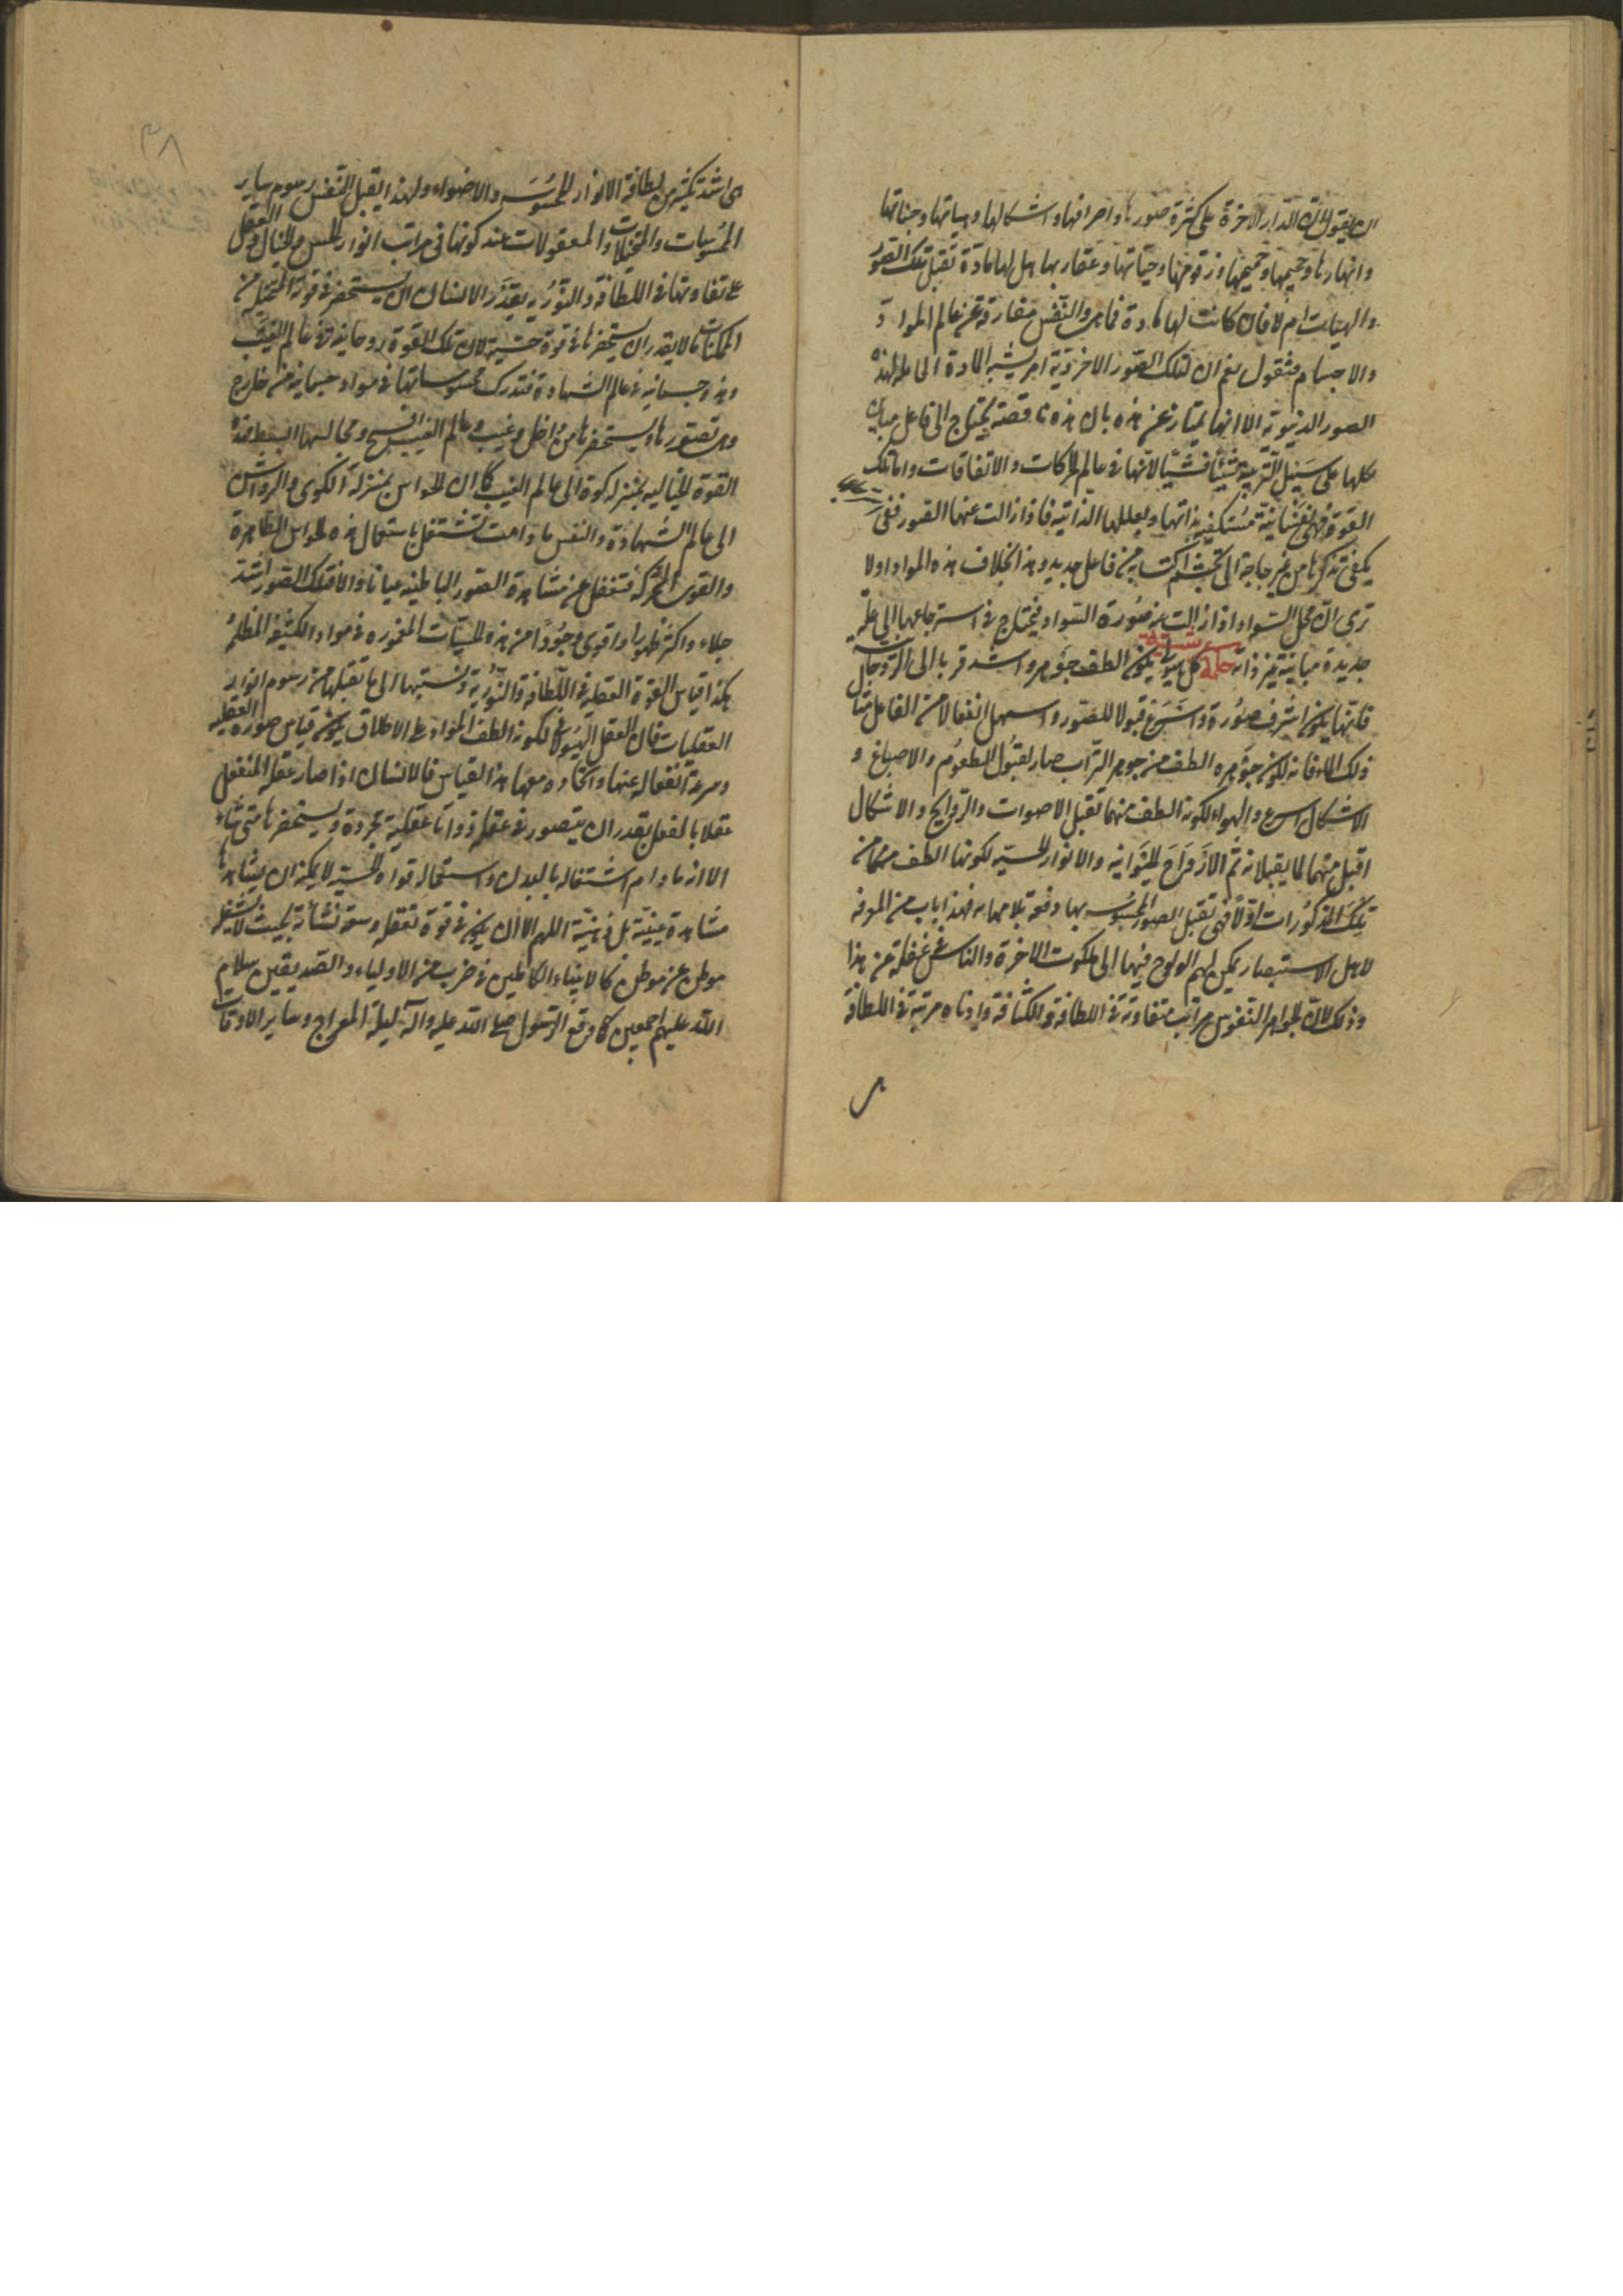 ان يقول ان الدار الاخرة على كثرة صورها واصرافها واشكالها وهياتها وجناتها
وانهارها وجحيمها وحميمها وزقومها وحياتها وعقاربها هل لها مادة تقبل تلك الصور
والهيئات ام لا فان كانت لها مادة فما هى والنفس مفارقة عن عالم المواد
والاجسام فنقول نعم ان لتلك الصور الاخروية امر يشبه المادة الحاملة لهذه
الصور الدنيوية الا انها يمتاز عن هذه بان هذه ناقصة يحتاج الى فاعل مباين
يكملها على سبيل التربية شيئا فشيئا لانها فى عالم الحركات والاتفاقات واما تلك
القوة فهى نفسانية مستكفية بذاتها وبعللها الذاتية فاذا زالت عنها الصور ففى
يكفى تذكرها من غير حاجة الى تجشم اكتسابه من فاعل جديد وهذا بخلاف هذه المواد اولا
ترى ان محل السواد اذا زالت عنه صورة السواد فيحتاج فى استرجاعها الى علة
جديدة مباينة عن ذاته حكمة عرشية كل هيولى يكون الطف جوهر واشد قربا الى الروحانية
فانها يكون اشرف صورة واسرع قبولا للصور واسهل انفعالا من الفاعل مثال
ذلك الماء فانه لكون جوهره الطف من جوهر التراب صار لقبول الطعوم والاصباغ و
الاشكال اسرع والهواء لكونه الطف منهما تقبل الاصوات والروايح والاشكال
اقبل منهما لما يقبلانه ثم الارواح الحيوانية والانوار الحسية لكونها الطف مما من
تلك المذكورات اولا فهى تقبل الصور المحسوسة بها دفعة بلا مهلة فهذا باب من المعرفة
لاهل الاستبصار يمكن لهم الولوج فيها الى ملكوت الاخرة والناس فى غفلة عن هذا
وذلك لان لجواهر النفوس مراتب متفاوتة فى اللطافة والكثافة وادناه مرتبة فى اللطافة
٣٨
هى اشد بكثير من لطافة الانوار المحسوسة والاضواء ولهذا يقبل النفس رسوم ساير
المحسوسات والمتخيلات والمعقولات عند كونها فى مراتب انوار الحس والخيال والعقل
على تفاوتها فى اللطافة والنورية ويقدر الانسان ان يستحضر فى قوته المتخيلة من
الممكنات ما لا يقدر ان يستحضرها فى قوة حسية لان تلك القوة روحانية فى عالم الغيب
وهذه جسمانية فى عالم الشهادة فتدرك محسوساتها فى مواد جسمانية من خارج
وهى تصورها ويستحضرها من داخل وغيب وعالم الغيب افسح ومجالسها ابسط فهذه
القوة الخيالية بمنزلة كوة الى عالم الغيب كما ان الحواس بمنزلة الكوى والرواشن
الى عالم الشهادة والنفس ما دامت تشتغل باستعمال هذه الحواس الظاهرة
والقوى المحركة فتغفل عن مشاهدة الصور الباطنية عيانا والا فتلك الصور اشد
جلاء واكثر ظهورا واقوى وجودا من هذه الحسيات المغمورة فى مواد الكثيفة المظلمة
هكذا قياس القوة العقلية فى اللطافة والنورية ونسبتها الى ما تقبلها من رسوم انوار
العقليات فان العقل الهيولانى لكونه الطف المواد على الاطلاق يكون قياس صوره العقلية
وسرعة انفعاله عنها واتحاده معها هذا القياس فالانسان اذا صار عقله المنفعل
عقلا بالفعل يقدر ان يتصور فى عقله ذواتا عقلية مجردة ويستحضرها متى شاء
الا انه ما دام اشتغاله بالبدن واستعماله قواه الحسية لا يمكنه ان يشاهدها
مشاهدة عينية بل ذهنية اللهم الا ان يكون فى قوة تعقله وسعة نشأته بحيث لا يشغله
موطن عن موطن كالانبياء الكاملين فى ضرب من الاولياء والصديقين سلام
الله عليهم اجمعين كما وقع الرسول صلى الله عليه وآله ليلة المعراج وساير الاوقات